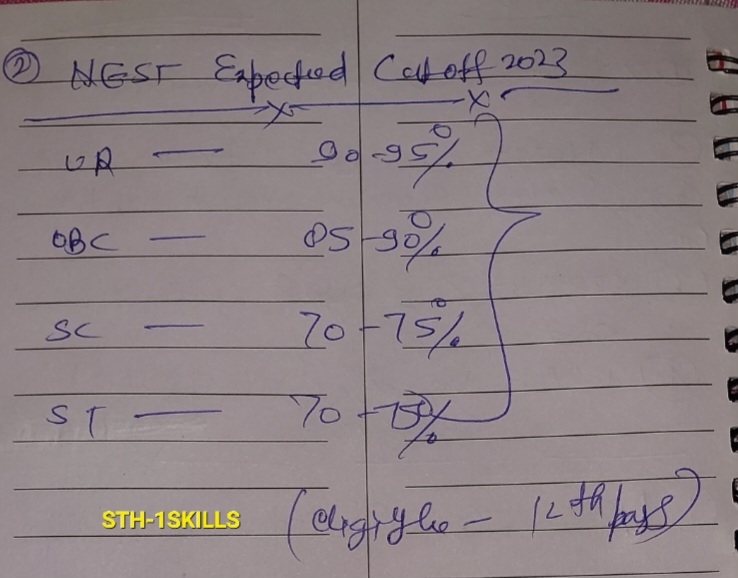 ② NEST Expected Cut off 2023
UR — 90-95%
OBC — 85-90%
SC — 70-75%
ST — 70-75%
STH-1SKILLS (eligible - 12th pass)